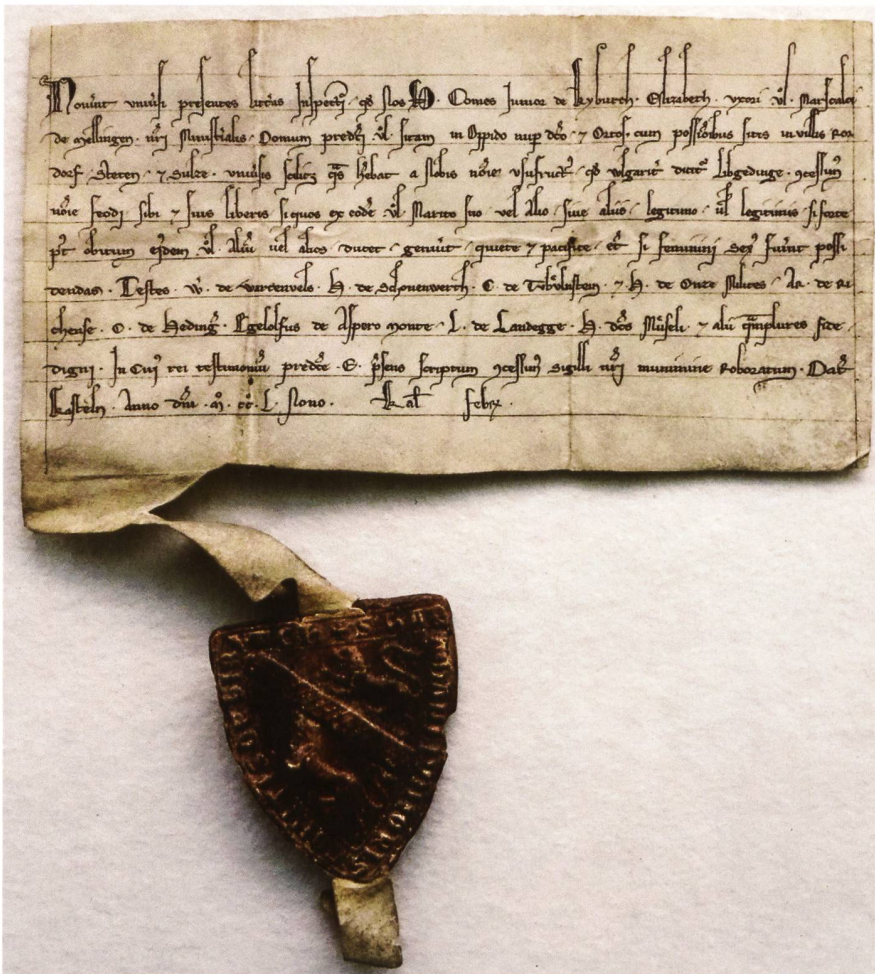 Noverint univsi presentes litteras Inspecturi · qd Nos H · Comes Iunior de Kyburch · Elizabeth · uxori Vl · Marscalci
de Mellingen · nri Ministialis · Domum predci Vl · sitam in Oppido nup dco · ⁊ Ortos · cum possionibus sitis in villis Ror
dorf · Steten · ⁊ Sulze · univsis scilicz qas hebat a Nobis noie ususfructus · qd volgarit dicit Libgedinge · ꝯcessim
noie feodi sibi ⁊ suis liberis si quos ex eode · Vl · Marito suo · vel Alio · sive aliis · legitimo · ul legitimis · si forte
pt obitum ejdem Vl · Aliu uel alios · ducet · genuit · quiete ⁊ pacifice · et si feminini sex fuint possi
dendas · Testes · W · de Wartenvels · H · de Schonenwerch · C · de · ⁊ H · de Onze Milites · Ar · de Ri
chense · O · de Heding · Egelolfus de Aspero monte · L · de Landegge · H · dcs Museli · ⁊ alii qmplures fide
digni · In Cuj rei testimoniu predce · E · psens scriptum ꝯcessim Sigilli nri munimine Roboratum · Dat
Kasteln · Anno dni · m · cc · L · Nono · Kal febr ·